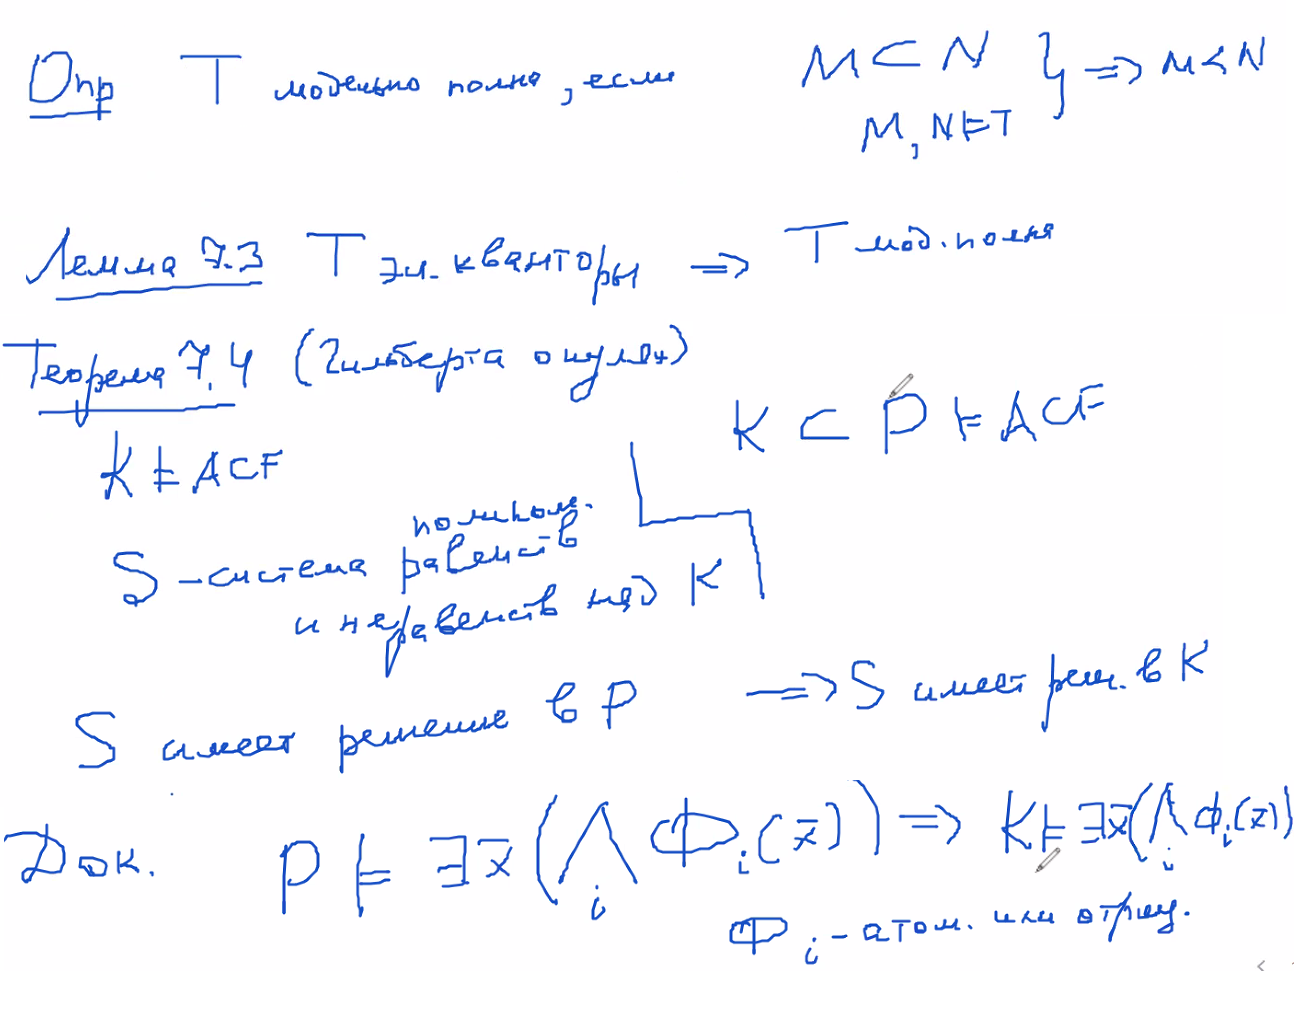 Опр T модельно полна, если M ⊂ N } ⇒ M ≺ N
M, N ⊨ T
Лемма 7.3 T эл. кванторы ⇒ T мод. полна
Теорема 7.4 (Гильберта о нулях)
K ⊨ ACF K ⊂ P ⊨ ACF
полином.
S - система равенств
и неравенств над K
S имеет решение в P ⇒ S имеет реш. в K
Док. P ⊨ ∃x̄ (⋀ᵢ Φᵢ(x̄)) ⇒ K ⊨ ∃x̄ (⋀ᵢ Φᵢ(x̄))
Φᵢ - атом. или отриц.